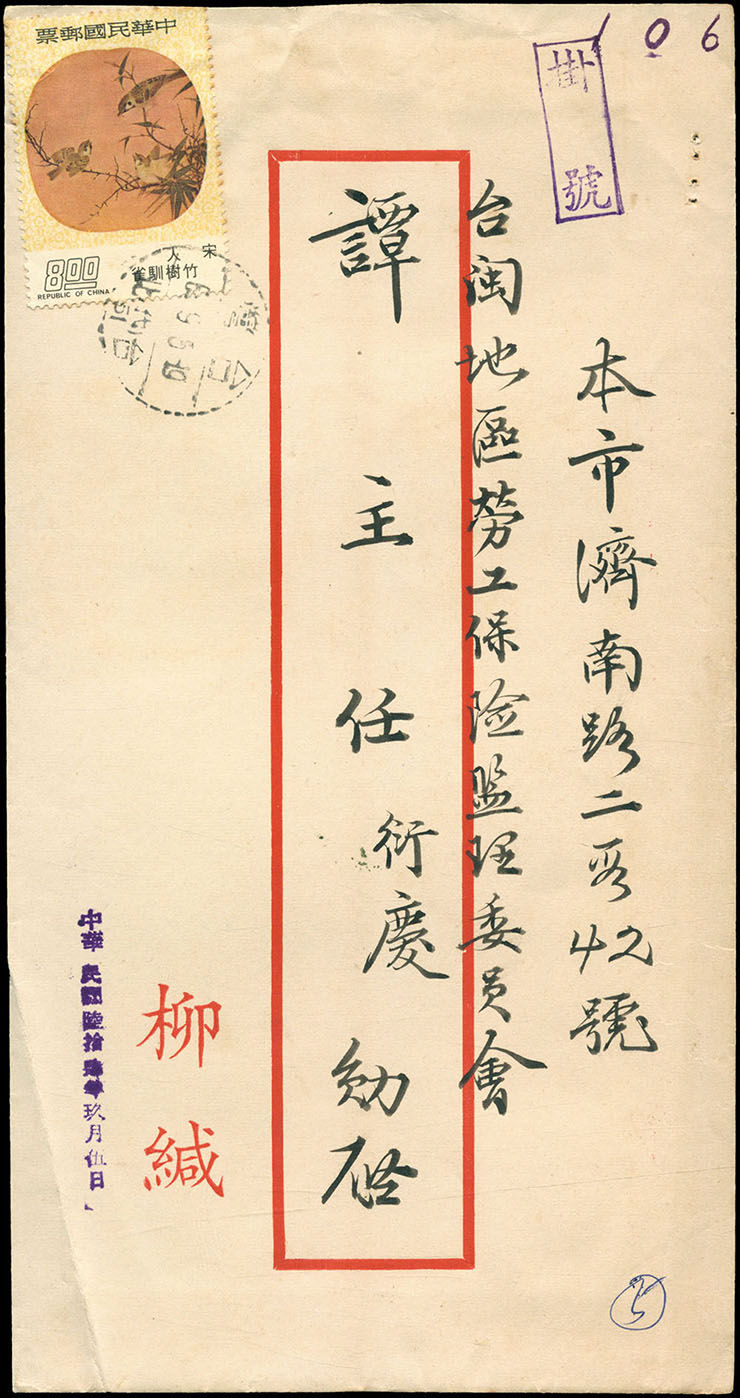 中華民國郵票
宋人
竹樹馴雀
8.00
REPUBLIC OF CHINA
106
掛號
本市濟南路二段42號
台閩地區勞工保险监理委员會
譚主任衍慶勛启
柳緘
中華民國陸拾年玖月伍日